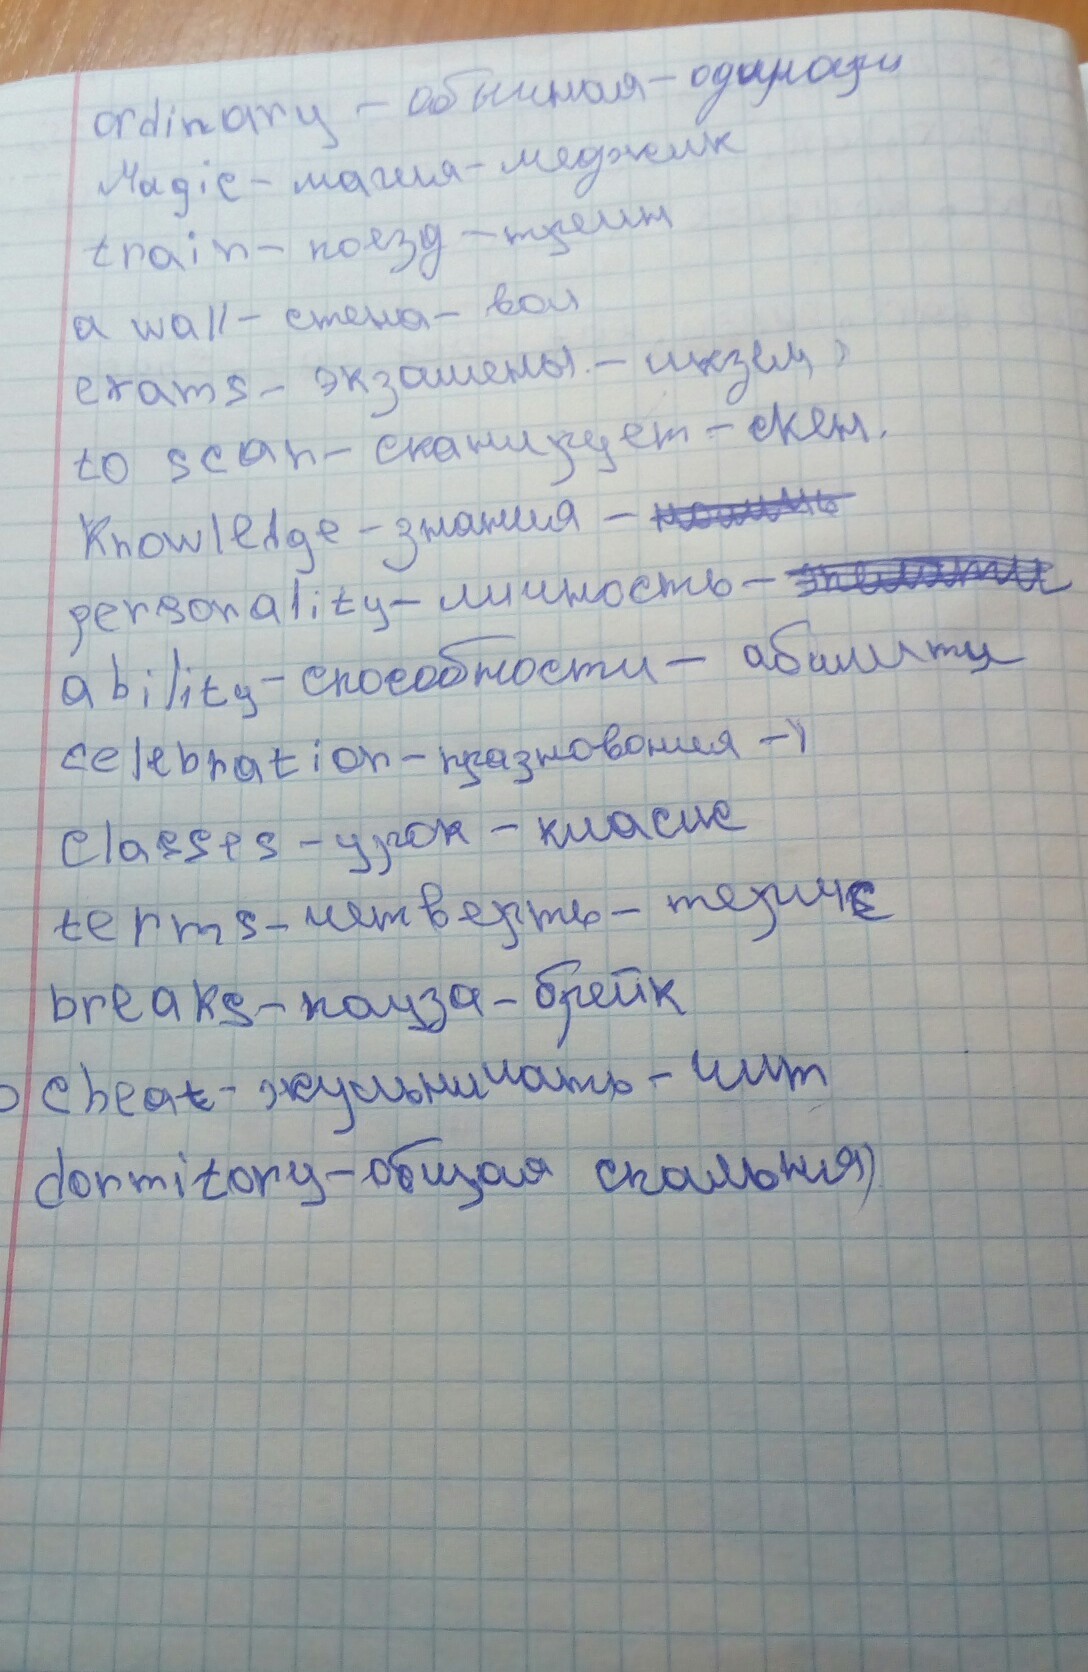 ordinary – обычная – одинари
Magic – магия – меджик
train – поезд – треин
a wall – стена – вол
exams – экзамены – икзем
to scan – сканирует – скен.
Knowledge – знания –
personality – личность –
ability – способности – абилити
celebration – празнования –
classes – урок – класис
terms – четверть – термс
breaks – пауза – брейк
cheat – жульничать – чит
dormitory – общая спальня)